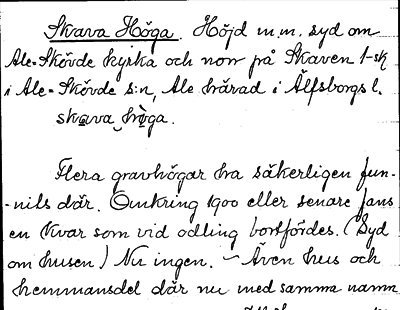 Skava Höga. Höjd m.m. syd om
Ale-Skövde kyrka och norr på Skaven 1-sk
i Ale-Skövde s:n, Ale härad i Älfsborgs l.
skava höga.
Flera gravhögar ha säkerligen fun-
-nits där. Omkring 1900 eller senare fans
en kvar som vid odling bortfördes. (Syd
om husen) Nu ingen. - Även hus och
hemmansdel där nu med samma namn